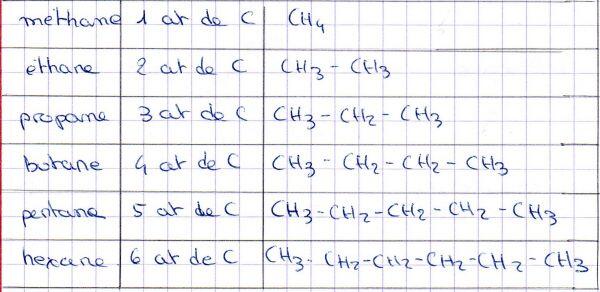 méthane 1 at de C CH4
éthane 2 at de C CH3 - CH3
propane 3 at de C CH3 - CH2 - CH3
butane 4 at de C CH3 - CH2 - CH2 - CH3
pentane 5 at de C CH3 - CH2 - CH2 - CH2 - CH3
hexane 6 at de C CH3 - CH2 - CH2 - CH2 - CH2 - CH3